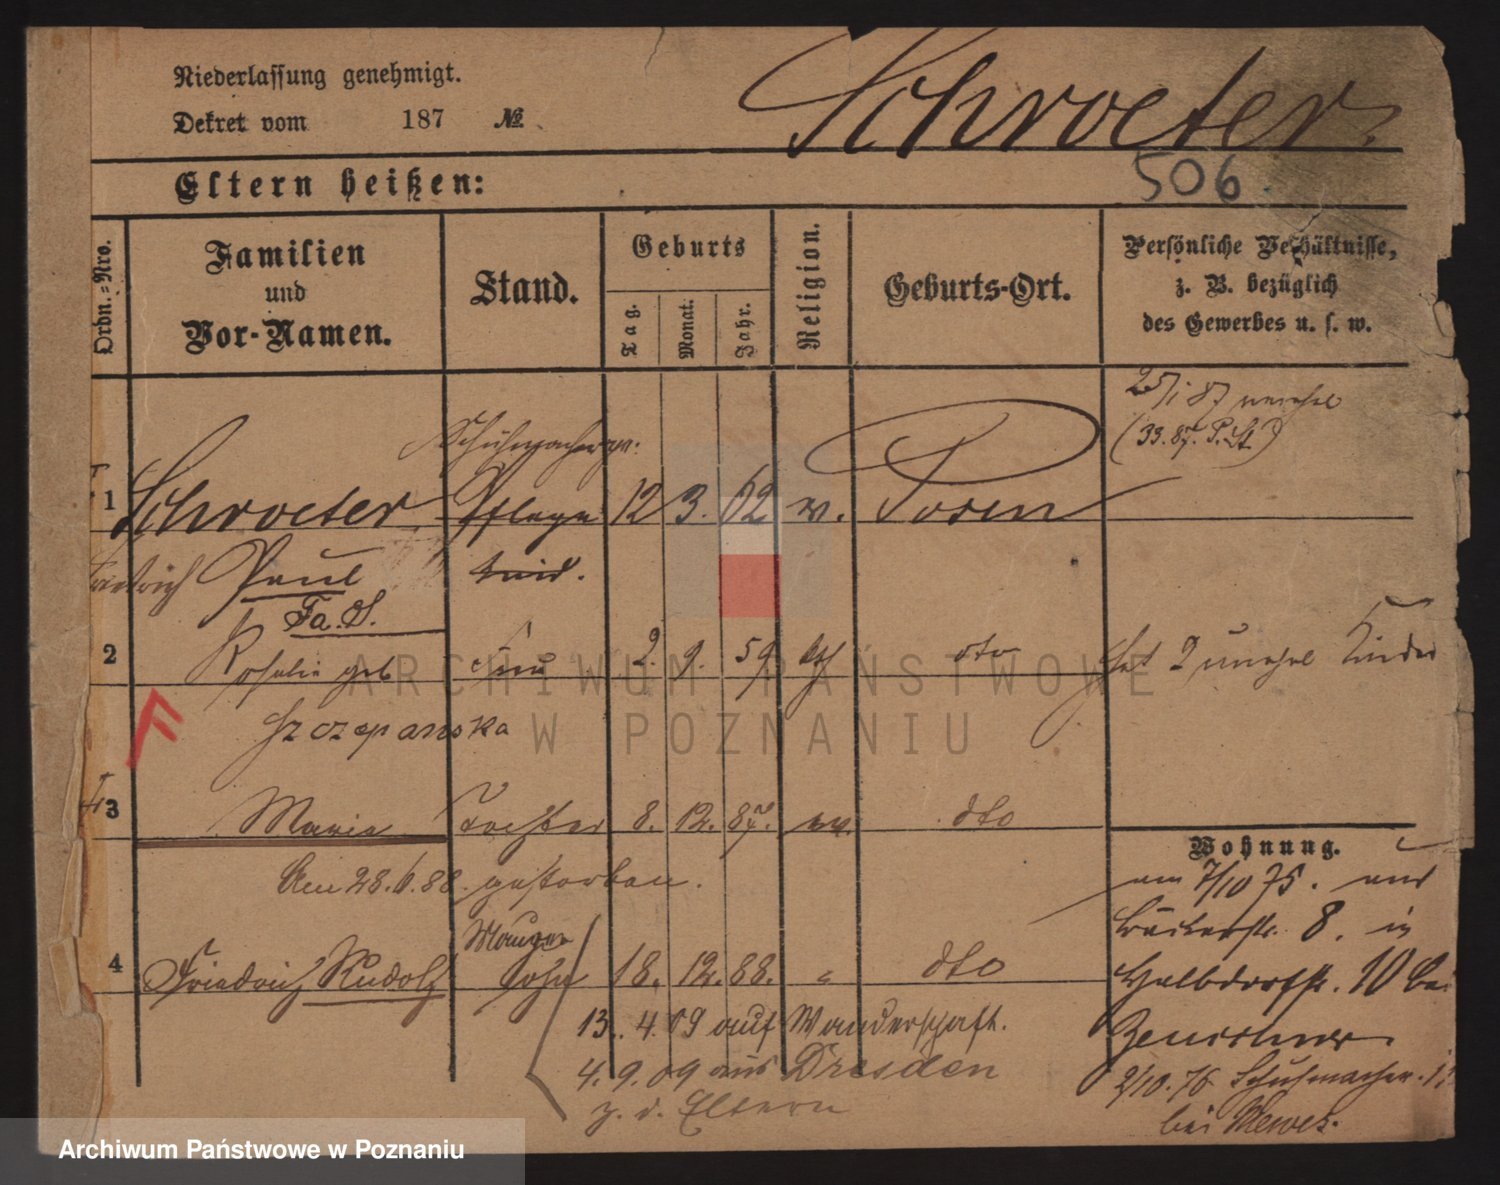 Niederlassung genehmigt.
Schroeter.
Dekret vom 187 №
506
Eltern heißen:
Ordn.-Nro.
Familien und Vor-Namen.
Stand.
Geburts
Tag.
Monat.
Jahr.
Religion.
Geburts-Ort.
Persönliche Verhältnisse, z. B. bezüglich des Gewerbes u. s. w.
25/1 87
(33.87. P. St)
Schuhmacherges.
1 Schroeter Pflege 12 3. 62 ev. Posen
Friedrich Paul kind.
Fa. S.
2 Rosalie geb Frau 2. 9. 59 kth dto hat 2 unehel Kinder
Szczepanska
3 Maria Tochter 8. 12. 87. ev. dto
Wohnung.
Am 28.6.88. gestorben.
am 7/10 75. aus
Bäckerstr. 8. in
Maurer
4 Friedrich Rudolf Sohn 18. 12. 88. " dto
Halbdorfstr. 10 bei
13. 4. 09 auf Wanderschaft.
4. 9. 09 aus Dresden
2/10. 76 Schuhmacher
z. d. Eltern
bei
ARCHIWUM PAŃSTWOWE
W POZNANIU
Archiwum Państwowe w Poznaniu